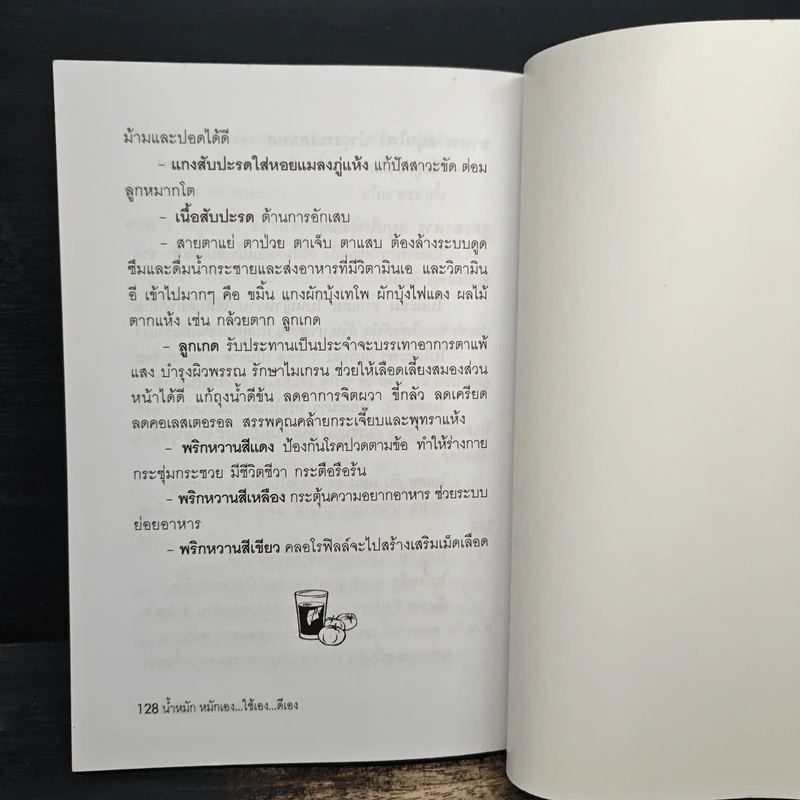 ม้ามและปอดได้ดี
– แกงสับปะรดใส่หอยแมลงภู่แห้ง แก้ปัสสาวะขัด ต่อม
ลูกหมากโต
– เนื้อสับปะรด ต้านการอักเสบ
– สายตาแย่ ตาป่วย ตาเจ็บ ตาแสบ ต้องล้างระบบดูด
ซึมและดื่มน้ำกระชายและส่งอาหารที่มีวิตามินเอ และวิตามิน
อี เข้าไปมากๆ คือ ขมิ้น แกงผักบุ้งเทโพ ผักบุ้งไฟแดง ผลไม้
ตากแห้ง เช่น กล้วยตาก ลูกเกด
– ลูกเกด รับประทานเป็นประจำจะบรรเทาอาการตาแพ้
แสง บำรุงผิวพรรณ รักษาไมเกรน ช่วยให้เลือดเลี้ยงสมองส่วน
หน้าได้ดี แก้ถุงน้ำดีข้น ลดอาการจิตผวา ขี้กลัว ลดเครียด
ลดคอเลสเตอรอล สรรพคุณคล้ายกระเจี๊ยบและพุทราแห้ง
– พริกหวานสีแดง ป้องกันโรคปวดตามข้อ ทำให้ร่างกาย
กระชุ่มกระชวย มีชีวิตชีวา กระตือรือร้น
– พริกหวานสีเหลือง กระตุ้นความอยากอาหาร ช่วยระบบ
ย่อยอาหาร
– พริกหวานสีเขียว คลอโรฟิลล์จะไปสร้างเสริมเม็ดเลือด
128 น้ำหมัก หมักเอง...ใช้เอง...ดีเอง